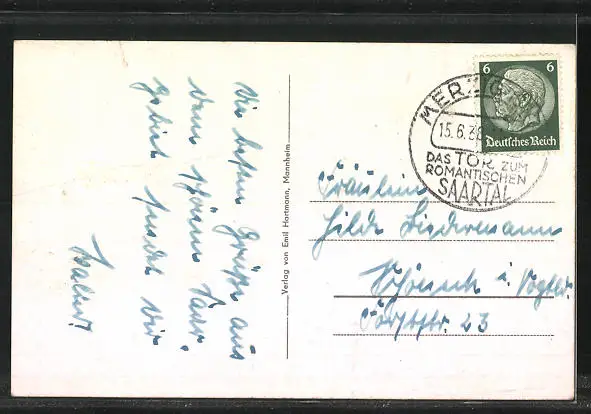 Die besten Grüße aus
dem schönen Saar-
gebiet sendet Dir
Verlag von Emil Hartmann, Mannheim
6 6
Deutsches Reich
MERZIG
15.6.38
DAS TOR ZUM
ROMANTISCHEN
SAARTAL
Fräulein
Hilde Biedermann
Schöneck i. Vogtld.
23